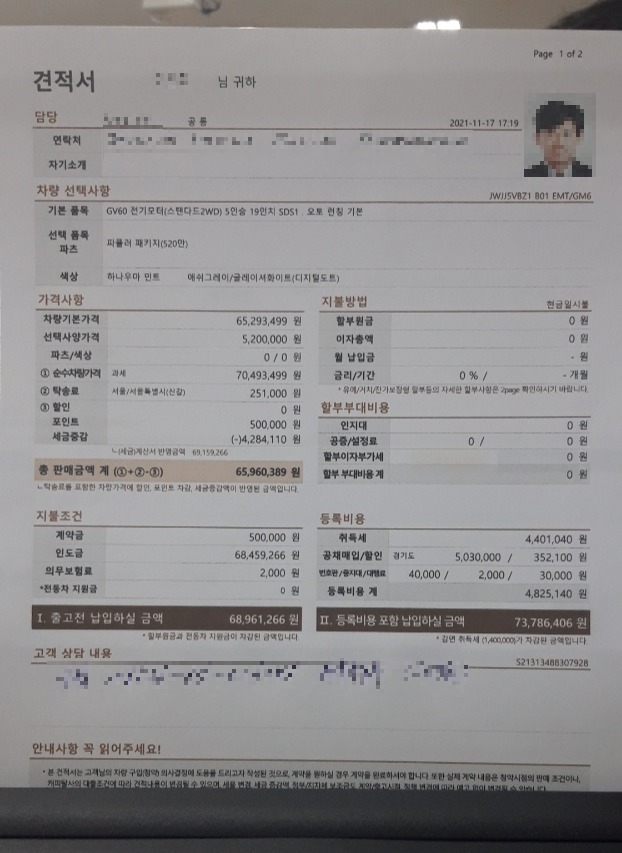 Page 1 of 2
견적서 님 귀하
담당 공통 2021-11-17 17:19
연락처
자기소개
차량 선택사항 JWJJ5VBZ1 B01 EMT/GM6
기본 품목 GV60 전기모터(스탠다드2WD) 5인승 19인치 SDS1 . 오토 런칭 기본
선택 품목
파츠 파퓰러 패키지(520만)
색상 하나우마 민트 애쉬그레이/글레이셔화이트(디지털도트)
가격사항
차량기본가격 65,293,499 원
선택사양가격 5,200,000 원
파츠/색상 0 / 0 원
① 순수차량가격 과세 70,493,499 원
② 탁송료 서울/서울특별시(신갈) 251,000 원
③ 할인 0 원
포인트 500,000 원
세금증감 (-)4,284,110 원
ㄴ(세금)계산서 반영금액 69,159,266
총 판매금액 계 (①+②-③) 65,960,389 원
ㄴ탁송료를 포함한 차량가격에 할인, 포인트 차감, 세금증감액이 반영된 금액입니다.
지불방법 현금일시불
할부원금 0 원
이자총액 0 원
월 납입금 - 원
금리/기간 0 % / - 개월
* 유예/거치/잔가보장형 할부등의 자세한 할부사항은 2page 확인하시기 바랍니다.
할부부대비용
인지대 0 원
공증/설정료 0 / 0 원
할부이자부가세 0 원
할부 부대비용 계 0 원
지불조건
계약금 500,000 원
인도금 68,459,266 원
의무보험료 2,000 원
*전동차 지원금 0 원
Ⅰ. 출고전 납입하실 금액 68,961,266 원
* 할부원금과 전동차 지원금이 차감된 금액입니다.
등록비용
취득세 4,401,040 원
공채매입/할인 경기도 5,030,000 / 352,100 원
번호판/증지대/대행료 40,000 / 2,000 / 30,000 원
등록비용 계 4,825,140 원
Ⅱ. 등록비용 포함 납입하실 금액 73,786,406 원
* 감면 취득세 (1,400,000)가 차감된 금액입니다.
고객 상담 내용 S21313488307928
안내사항 꼭 읽어주세요!
* 본 견적서는 고객님의 차량 구입(청약) 의사결정에 도움을 드리고자 작성된 것으로, 계약을 원하실 경우 계약을 완료하셔야 합니다. 또한 실제 계약 내용은 청약시점의 판매 조건이나,
캐피탈사의 대출조건에 따라 견적내용이 변경될 수 있으며, 세율 변경, 세금 증감액, 정부/지자체 보조금도 계약/출고시점, 정책 변경에 따라 예고 없이 변경될 수 있습니다.